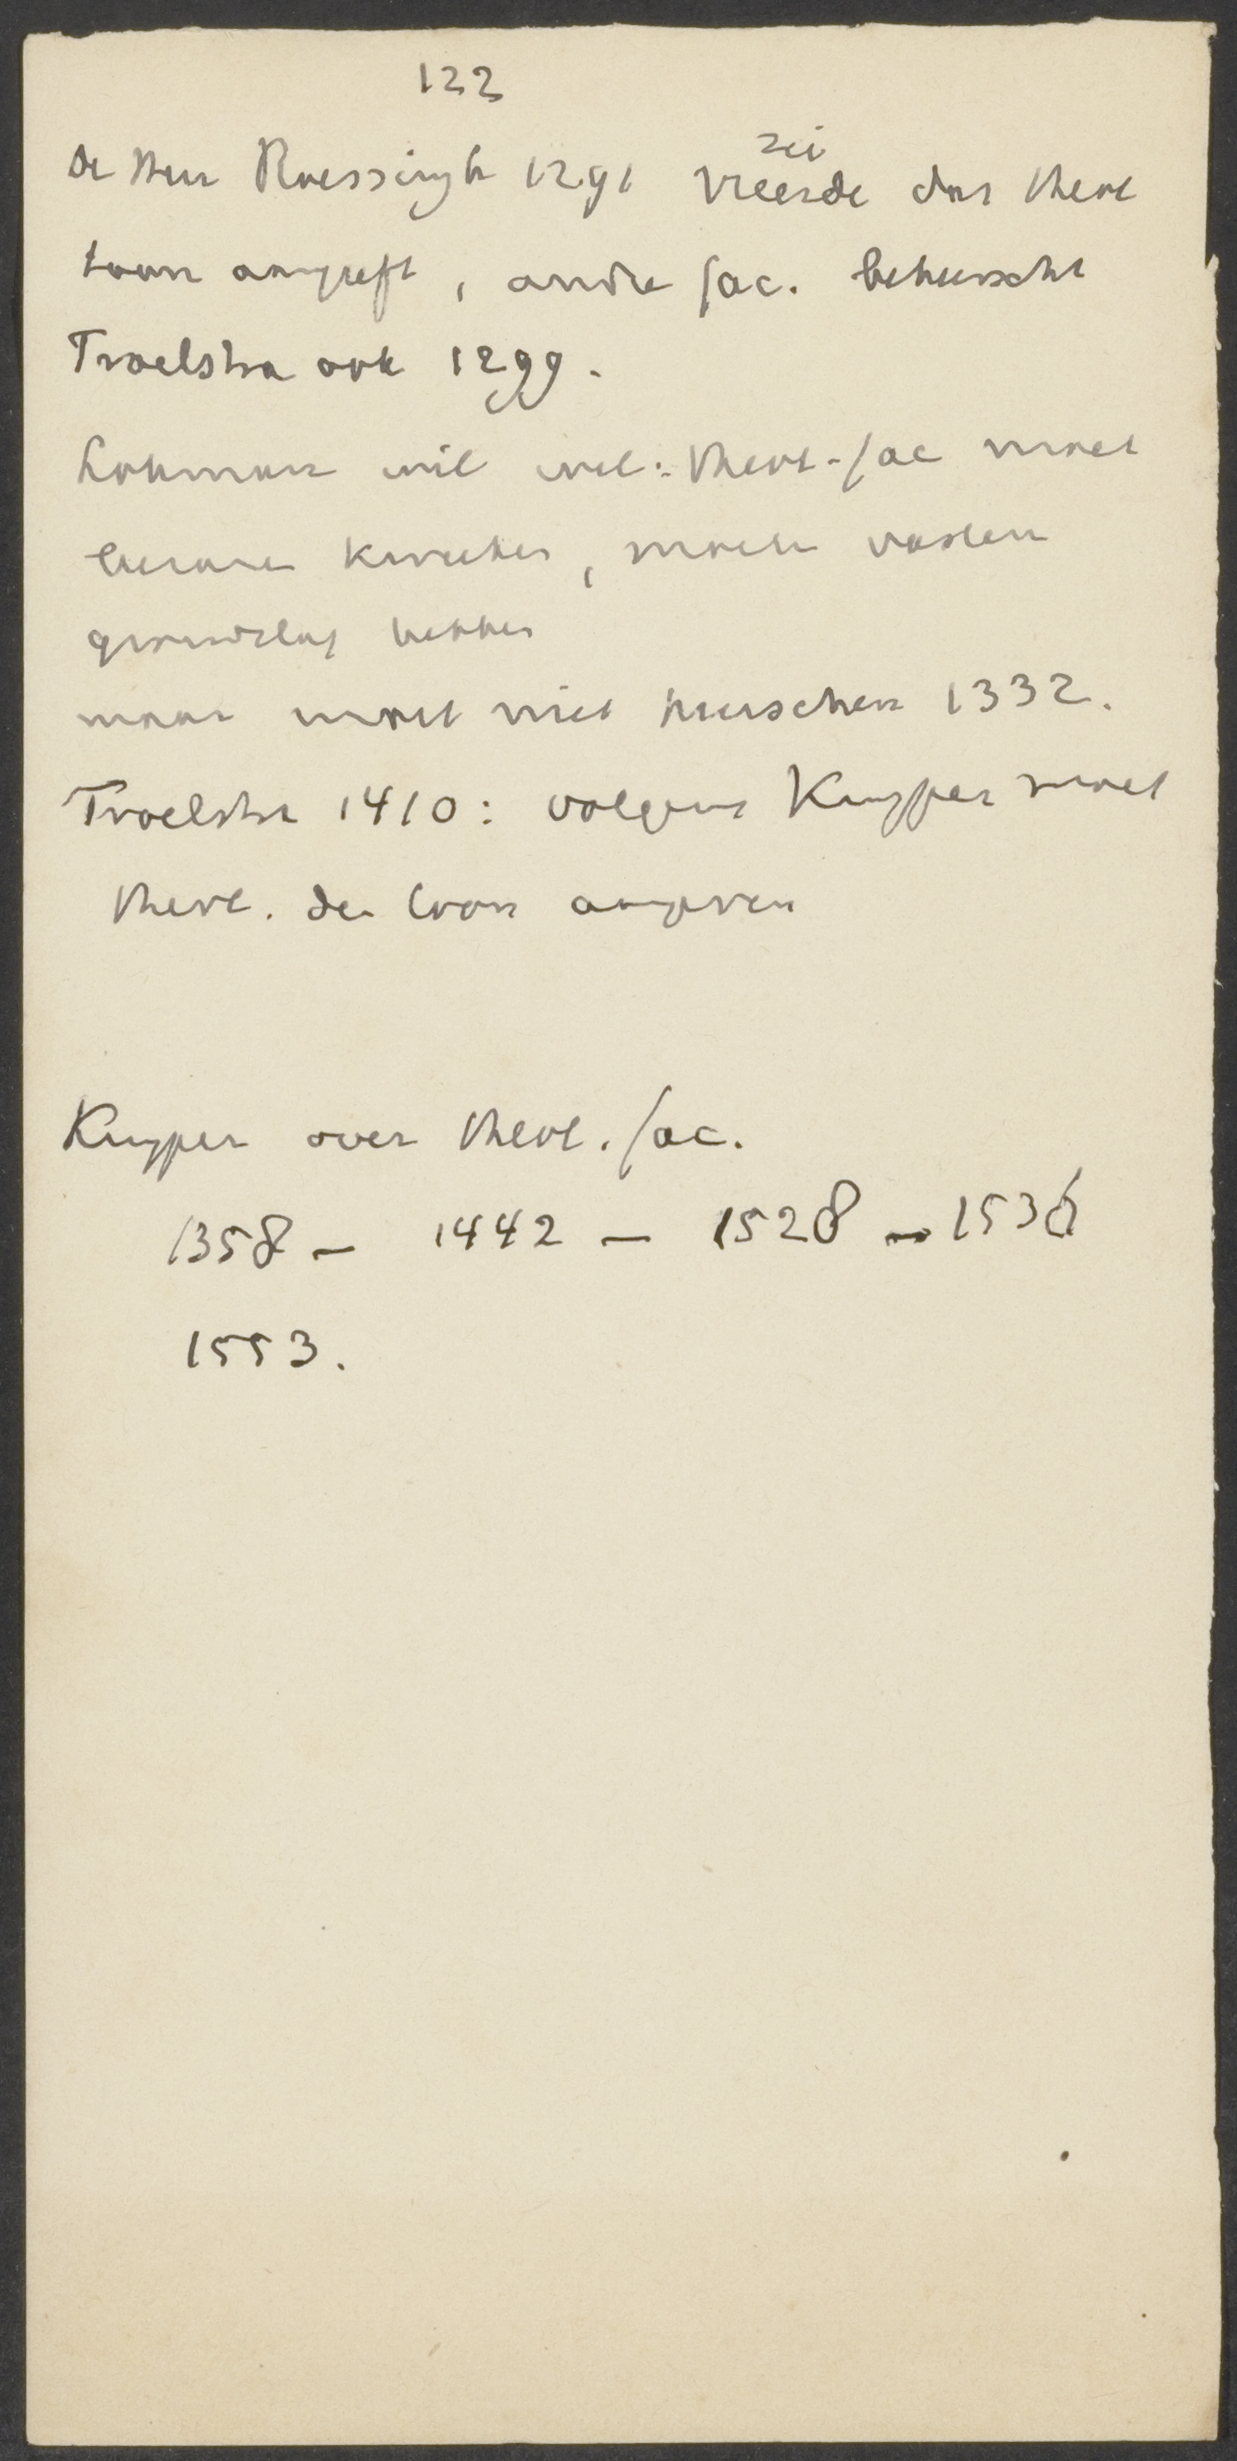 122
De Heer Roessingh 1291 zei vreesde dat theol
toon aangeeft, andre fac. beheerscht
Troelstra ook 1299.
Lohman wil wel: theol-fac moet
leeraren kweeken, moeten vasten
grondslag hebben
maar moet niet heerschen 1332.
Troelstra 1410: volgens Kuyper moet
theol. den toon aangeven
Kuyper over theol. fac.
1358 – 1442 – 1528 – 1536
1553.